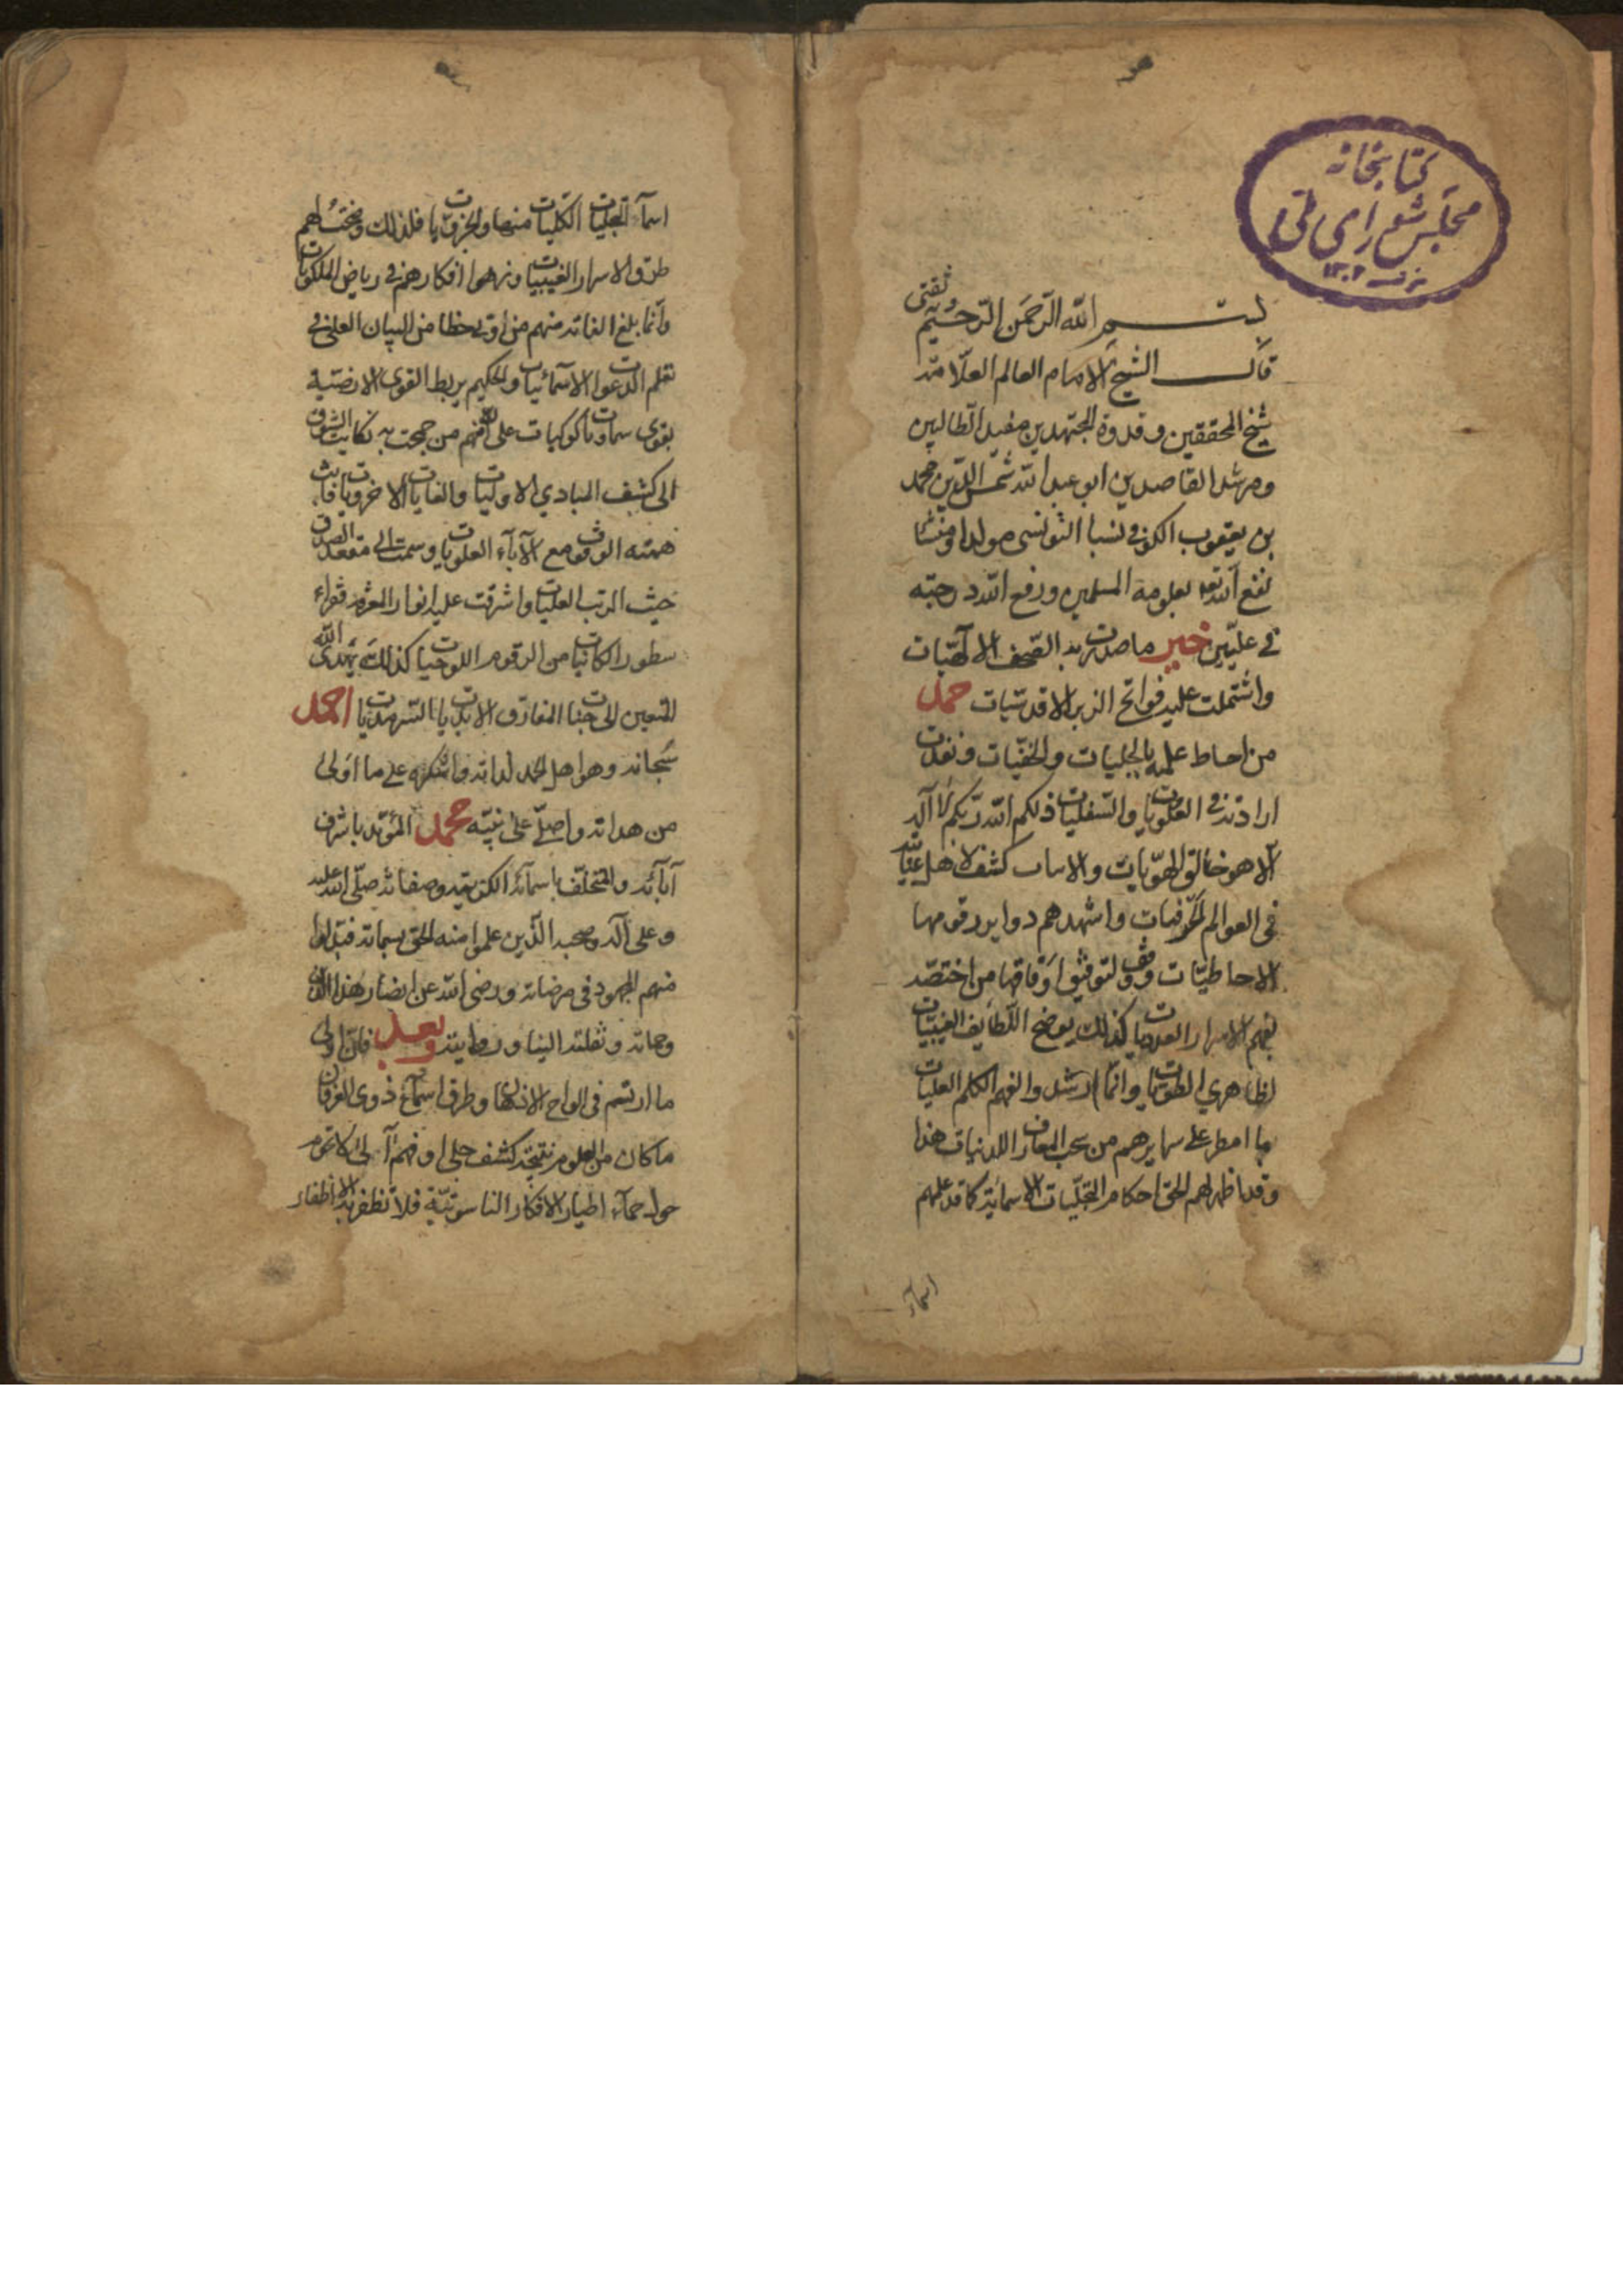 كتابخانه
مجلس شورای ملی
۱۳۰۲
بسم الله الرحمن الرحيم وثقتى
قال الشيخ الامام العالم العلامة
شيخ المحققين وقدوة المجتهدين مفيد الطالبين
ومرشد القاصدين ابو عبد الله شمس الدين محمد
بن يعقوب الكوفى نسبا التونسى مولدا ومنشا
نفع الله بعلومه المسلمين ورفع الله درجته
فى عليين خير ما صدرت به الصحف الالهيات
واشتملت عليه فواتح الزبر الاقدسيات حمد
من احاط علمه بالجليات والخفيات ونفذت
ارادته فى العلويات والسفليات ذلكم الله ربكم لا اله
الا هو خالق الهويات كشف لاهل
فى العوالم الحرفيات واشهدهم دواير رقومها
الاحاطيات وفق اوفاقها من اختصه
بفهم الاسرار كذلك يوضح اللطايف الغيبيات
وانما ارشد والفهم الكلم العليات
بما امطر على سرايرهم من سحب المعارف اللدنيات هذا
وقد اظهر لهم الحق احكام التجليات الاسمائية كما قد علمهم
اسماء
اسماء التجليات الكليات منها والجزويات فلذلك وضحت لهم
طرق الاسرار الغيبيات ونزهوا افكارهم فى رياض الملكويات
وانما بلغ الغاية منهم من اوتى حظا من البيان العلى فى
تعلم الدعوات الاسمائيات والحكيم يربط القوى الارضية
بقوى سماويات كوكبيات على انه منهم من جمحت به ركايب الشوق
الى كشف المبادي الاوليات والغايات الاخرويات
همته الوقوف مع الآباء العلويات وسمت الى مقعد الصدق
حيث الرتب العليات واشرقت عليه انوار العزة فقراء
سطور الكائنات من الرقوم اللوحيات كذلك يهدى الله
المتقين الى جنات المعارف الابديات السرمديات احمده
سبحانه وهو اهل الحمد لذاته واشكره على ما اولى
من هداته واصلى على نبيه محمد المؤيد باشرف
آبائه والمتخلق باسمائه وصفاته صلى الله عليه
وعلى آله وصحبه الذين علموا منه الحق بسماته فبذلوا
منهم المجهود فى مرضاته ورضى الله عن انصار هذا الدين
وحماته ونقلته الينا وبعد فان اولى
ما ارتسم فى الواح الاذهان وطرق اسماع ذوى العرفان
ما كان من العلوم نتيجة كشف جلى او فهم لا تحوم
حول حماه اطيار الافكار الناسوتية فلا تظفر به الاظفار